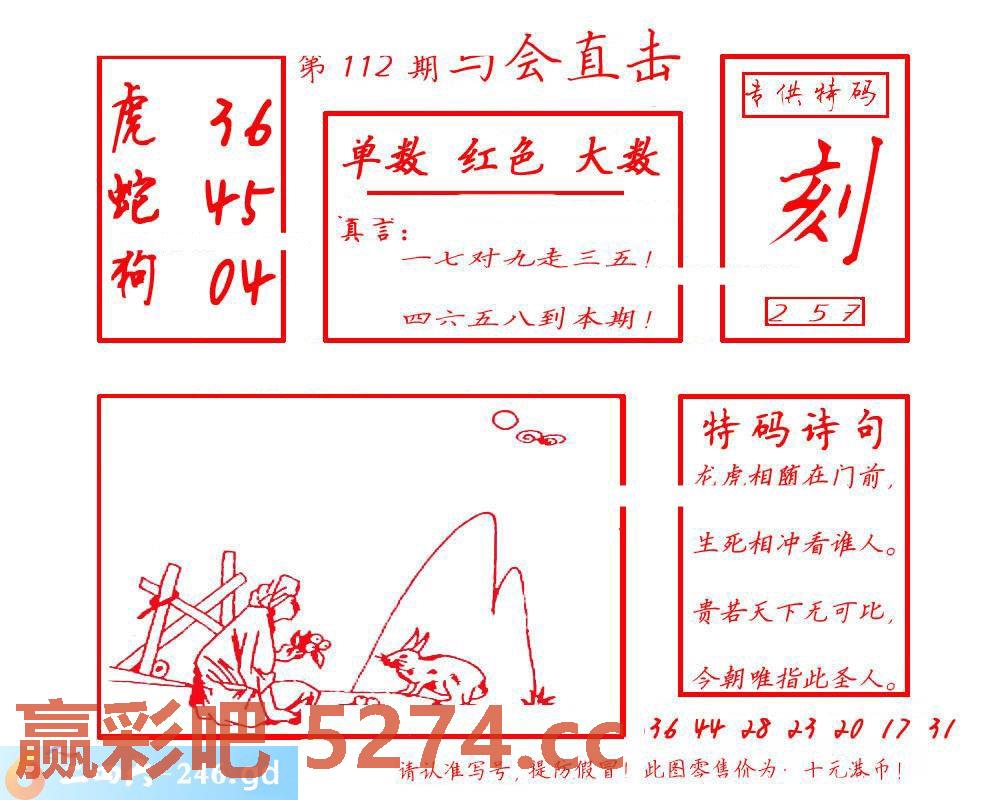 第 112 期 与会直击
虎 36
蛇 45
狗 04
单数 红色 大数
真言：
一七对九走三五！
四六五八到本期！
专供特码
刻
2 5 7
特码诗句
龙虎相随在门前，
生死相冲看谁人。
贵若天下无可比，
今朝唯指此圣人。
36 44 28 23 20 17 31
赢彩吧 5274.cc
-246.gd
请认准写号，提防假冒！此图零售价为·十元港币！